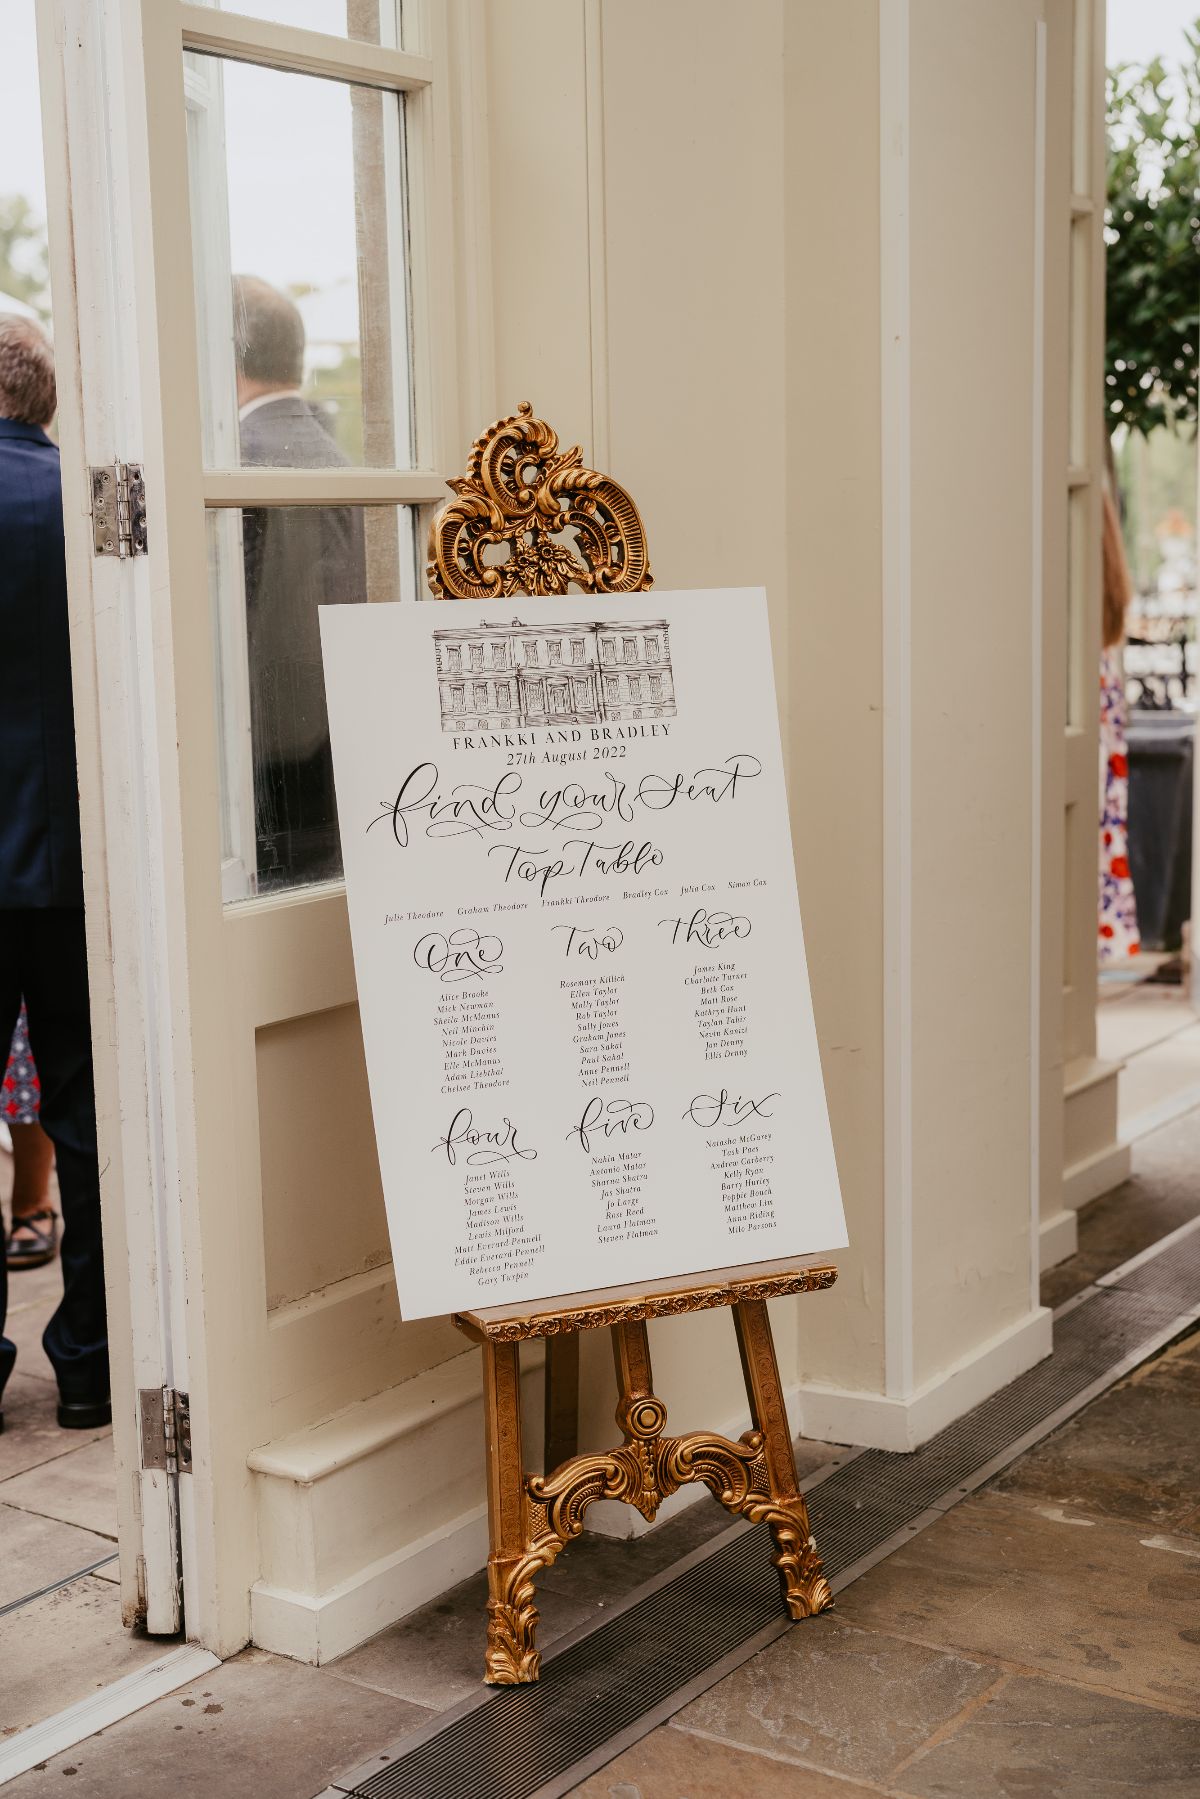 FRANKKI AND BRADLEY
27th August 2022
find your seat
Top Table
Julie Theodore Graham Theodore Frankki Theodore Bradley Cox Julia Cox Simon Cox
One
Alice Brooke
Mick Newman
Sheila McManus
Neil Minchin
Nicole Davies
Mark Davies
Elle McManus
Adam Liebthal
Chelsee Theodore
Two
Rosemary Killich
Ellen Taylor
Molly Taylor
Rob Taylor
Sally Jones
Graham Jones
Sara Sahal
Paul Sahal
Anne Pennell
Neil Pennell
Three
James King
Charlotte Turner
Beth Cox
Matt Rose
Kathryn Hunt
Taylan Tahir
Nevin Kanizi
Jon Denny
Ellis Denny
four
Janet Wills
Steven Wills
Morgan Wills
James Lewis
Madison Wills
Lewis Milford
Matt Everard-Pennell
Eddie Everard-Pennell
Rebecca Pennell
Gary Turpin
five
Nahla Matar
Antonio Matar
Sharna Shatra
Jas Shatra
Jo Large
Rose Reed
Laura Flatman
Steven Flatman
Six
Natasha McGarey
Tash Paes
Andrew Carberry
Kelly Ryan
Barry Hurley
Poppie Bouch
Matthew Lim
Anna Riding
Milo Parsons